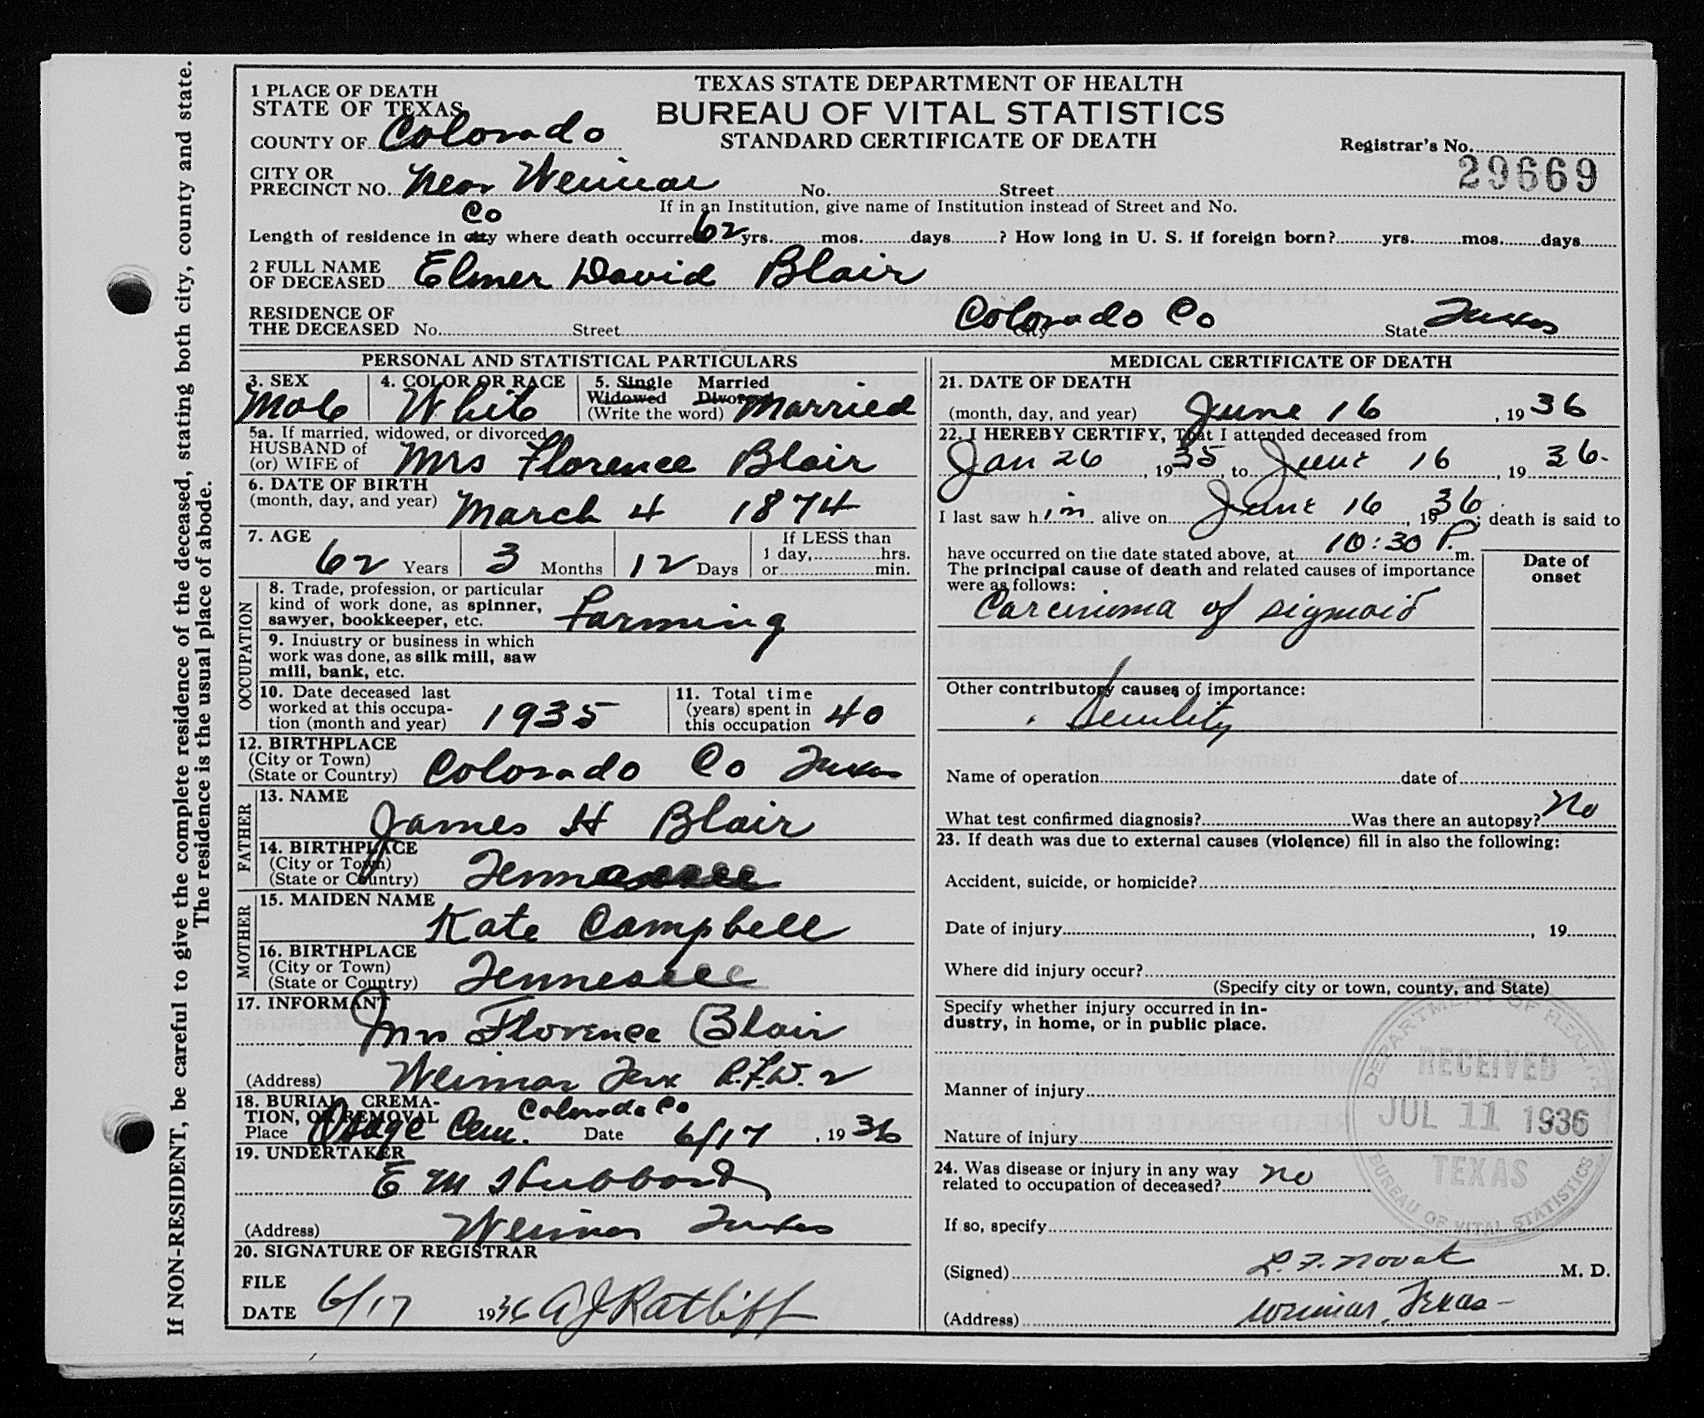 If NON-RESIDENT, be careful to give the complete residence of the deceased, stating both city, county and state.
The residence is the usual place of abode.
TEXAS STATE DEPARTMENT OF HEALTH
BUREAU OF VITAL STATISTICS
STANDARD CERTIFICATE OF DEATH
1 PLACE OF DEATH
STATE OF TEXAS
COUNTY OF Colorado
Registrar's No. 29669
CITY OR
PRECINCT NO. Near Weimar No. Street
If in an Institution, give name of Institution instead of Street and No.
Co
Length of residence in city where death occurred 62 yrs. mos. days ? How long in U. S. if foreign born? yrs. mos. days
2 FULL NAME
OF DECEASED Elmer David Blair
RESIDENCE OF
THE DECEASED No. Street Colorado Co City State Texas
PERSONAL AND STATISTICAL PARTICULARS
3. SEX Male
4. COLOR OR RACE White
5. Single Married
Widowed Divorced
(Write the word) Married
5a. If married, widowed, or divorced
HUSBAND of
(or) WIFE of Mrs Florence Blair
6. DATE OF BIRTH
(month, day, and year) March 4 1874
7. AGE 62 Years 3 Months 12 Days
If LESS than
1 day, hrs.
or min.
OCCUPATION
8. Trade, profession, or particular
kind of work done, as spinner,
sawyer, bookkeeper, etc. Farming
9. Industry or business in which
work was done, as silk mill, saw
mill, bank, etc.
10. Date deceased last
worked at this occupa-
tion (month and year) 1935
11. Total time
(years) spent in
this occupation 40
12. BIRTHPLACE
(City or Town)
(State or Country) Colorado Co Texas
FATHER
13. NAME James H Blair
14. BIRTHPLACE
(City or Town)
(State or Country) Tennessee
MOTHER
15. MAIDEN NAME Kate Campbell
16. BIRTHPLACE
(City or Town)
(State or Country) Tennessee
17. INFORMANT
Mrs Florence Blair
(Address) Weimar Tex R.F.D. 2
18. BURIAL, CREMA-
TION, OR REMOVAL Colorado Co
Place Osage Cem. Date 6/17, 1936
19. UNDERTAKER
E M Hubbard
(Address) Weimar Texas
20. SIGNATURE OF REGISTRAR
FILE
DATE 6/17 1936 A J Ratliff
MEDICAL CERTIFICATE OF DEATH
21. DATE OF DEATH
(month, day, and year) June 16, 1936
22. I HEREBY CERTIFY, That I attended deceased from
Jan 26, 1935, to June 16, 1936.
I last saw him alive on June 16, 1936; death is said to
have occurred on the date stated above, at 10:30 P.m.
The principal cause of death and related causes of importance
were as follows:
Date of
onset
Carcinoma of sigmoid
Other contributory causes of importance:
Name of operation date of
What test confirmed diagnosis? Was there an autopsy? No
23. If death was due to external causes (violence) fill in also the following:
Accident, suicide, or homicide?
Date of injury , 19
Where did injury occur?
(Specify city or town, county, and State)
Specify whether injury occurred in in-
dustry, in home, or in public place.
Manner of injury
Nature of injury
24. Was disease or injury in any way
related to occupation of deceased? No
If so, specify
(Signed) L. F. Novak M. D.
(Address) Weimar, Texas
DEPARTMENT OF HEALTH
RECEIVED
JUL 11 1936
TEXAS
BUREAU OF VITAL STATISTICS